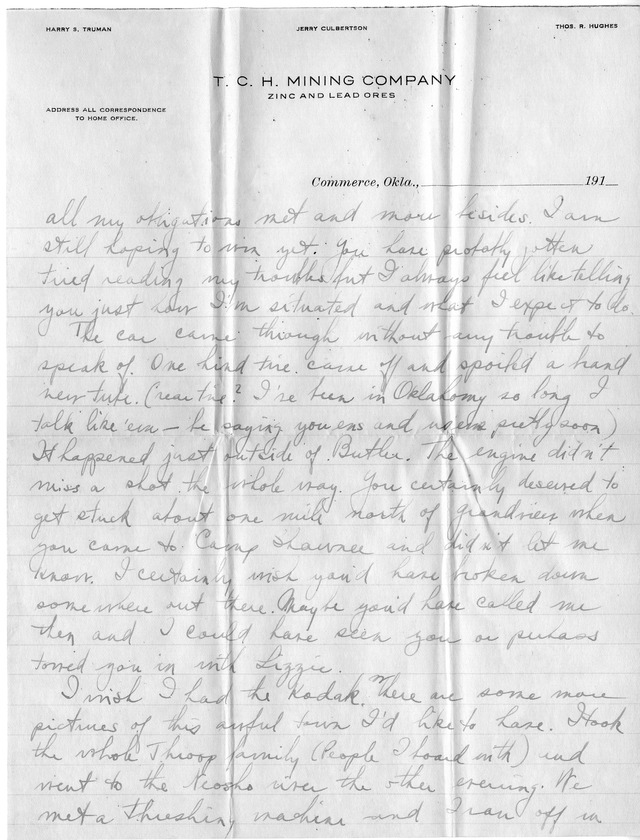 HARRY S. TRUMAN JERRY CULBERTSON THOS. R. HUGHES
T. C. H. MINING COMPANY
ZINC AND LEAD ORES
ADDRESS ALL CORRESPONDENCE
TO HOME OFFICE.
Commerce, Okla., 191
all my obligations met and more besides. I am
still hoping to win yet. You have probably gotten
tired reading my troubles but I always feel like telling
you just how I'm situated and what I expect to do.
The car came through without any trouble to
speak of. One hind tire came off and spoiled a brand
new tube. ( tire? I've been in Oklahomy so long I
talk like 'em – be saying you ens and us ens pretty soon)
It happened just outside of Butler. The engine didn't
miss a shot the whole way. You certainly deserved to
get stuck about one mile north of Grandview when
you came to Camp Shawnee and didn't let me
know. I certainly wish you'd have broken down
somewhere out there. Maybe you'd have called me
then and I could have seen you or perhaps
towed you in with Lizzie.
I wish I had the Kodak. There are some more
pictures of this awful town I'd like to have. I took
the whole Throop family (People I board with) and
went to the Neosho river the other evening. We
met a threshing machine and I ran off in